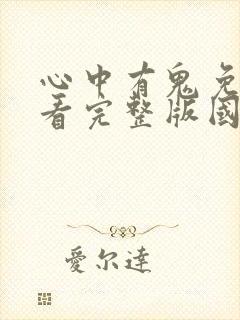 心中有鬼免
看完整版國
愛尔達